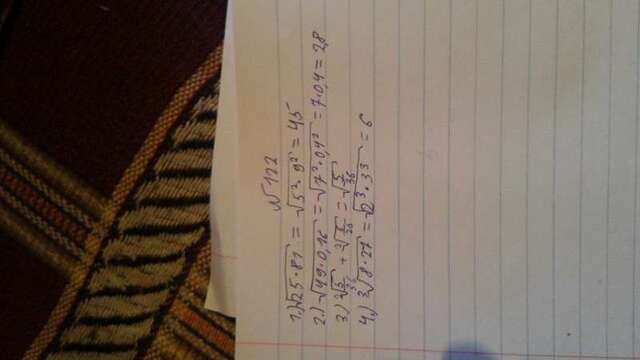 №122
1.) √25·81 = √5²·9² = 45
2.) √49·0,16 = √7²·0,4² = 7·0,4 = 2,8
3.) = √5/36
4.) ³√8·27 = √2³·3³ = 6